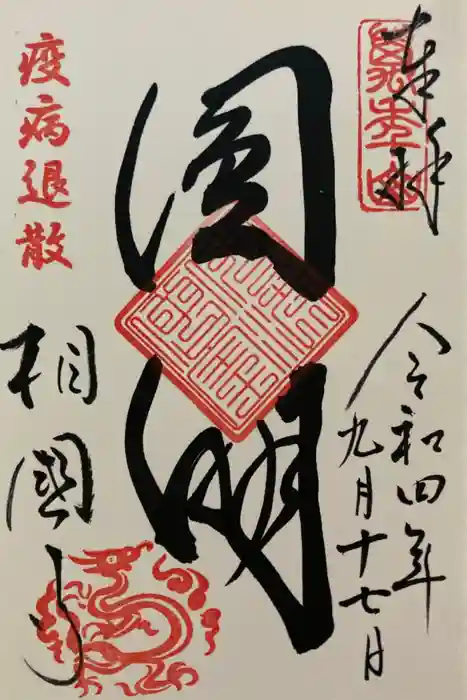 奉拝
萬年山
令和四年
九月十七日
圓明
疫病退散
相國寺